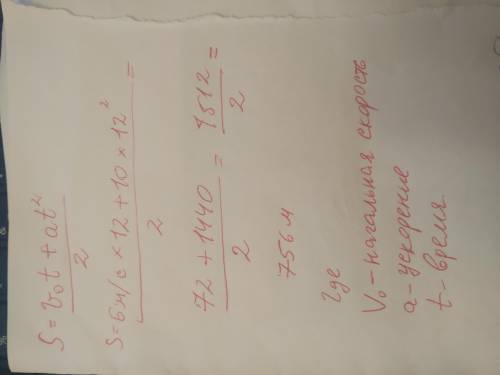 S = v₀t + at²
2
S = 6м/с × 12 + 10 × 12² =
2
72 + 1440 = 1512 =
2 2
756 м
где
V₀ - начальная скорость
a - ускорение
t - время